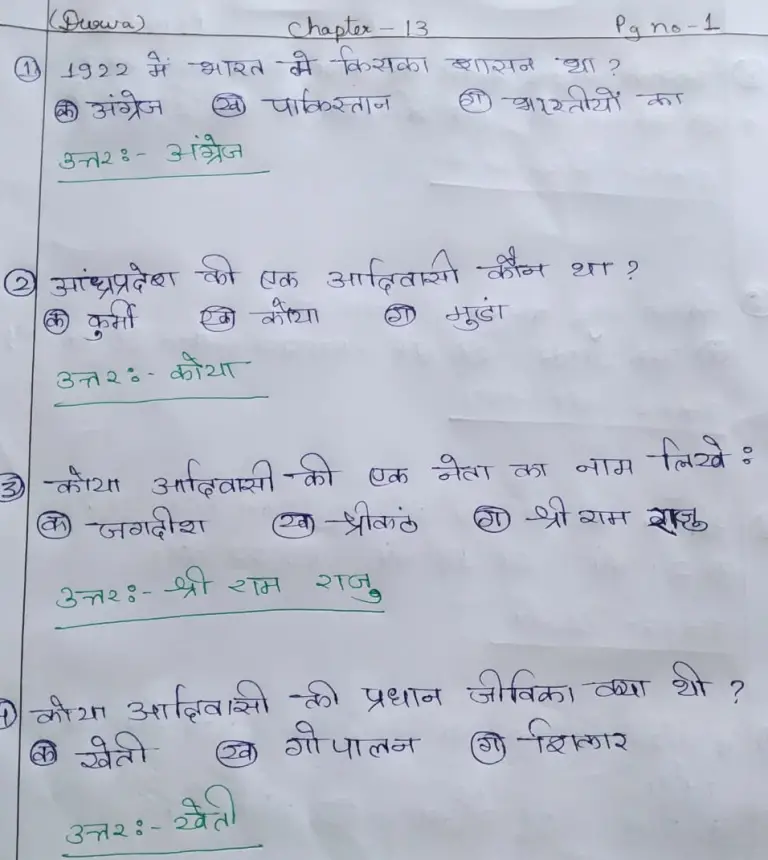 (Durwa) Chapter - 13 Pg no - 1
① 1922 में भारत मे किसका शासन था ?
(क) अंग्रेज (ख) पाकिस्तान (ग) भारतीयों का
उत्तर:- अंग्रेज
② आंध्रप्रदेश की एक आदिवासी कौन था ?
(क) कुर्मी (ख) कोया (ग) मुडां
उत्तर:- कोया
③ कोया आदिवासी की एक नेता का नाम लिखे :
(क) जगदीश (ख) श्रीकठं (ग) श्री राम राजु
उत्तर:- श्री राम राजु
④ कोया आदिवासी की प्रधान जीविका क्या थी ?
(क) खेती (ख) गोपालन (ग) शिकार
उत्तर:- खेती